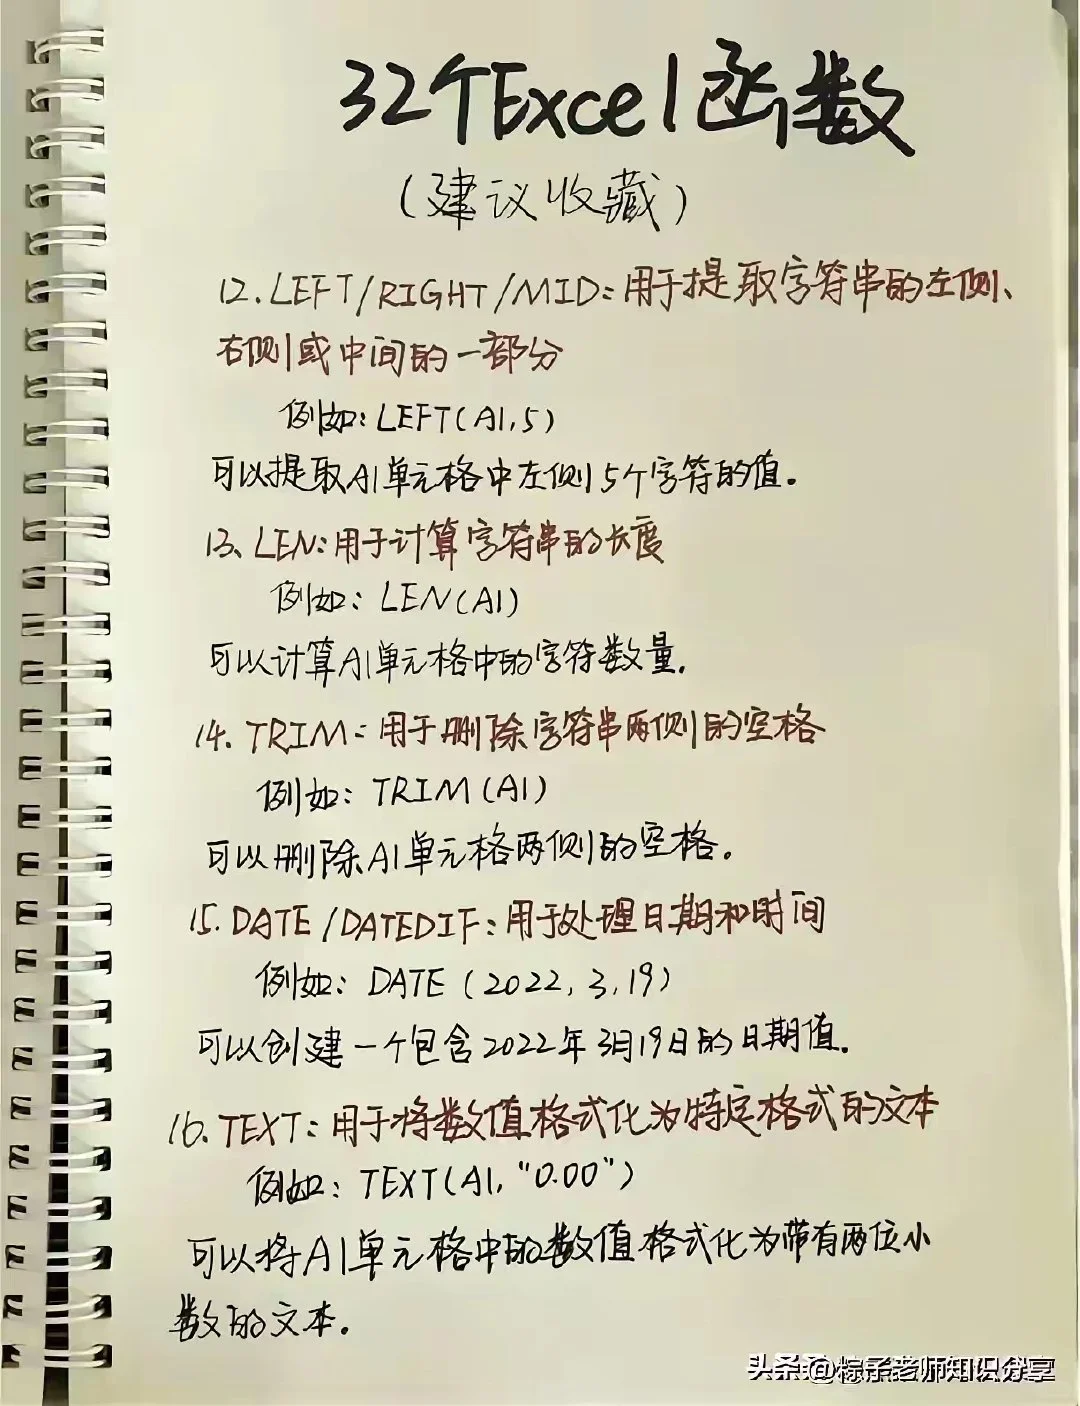 32个Excel函数
(建议收藏)
12.LEFT/RIGHT/MID:用于提取字符串的左侧、
右侧或中间的一部分
例如:LEFT(A1,5)
可以提取A1单元格中左侧5个字符的值。
13、LEN:用于计算字符串的长度
例如:LEN(A1)
可以计算A1单元格中的字符数量.
14.TRIM:用于删除字符串两侧的空格
例如:TRIM(A1)
可以删除A1单元格两侧的空格。
15.DATE/DATEDIF:用于处理日期和时间
例如:DATE(2022,3,19)
可以创建一个包含2022年3月19日的日期值.
16.TEXT:用于将数值格式化为特定格式的文本
例如:TEXT(A1,"0.00")
可以将A1单元格中的数值格式化为带有两位小
数的文本.
头条@粽子老师知识分享